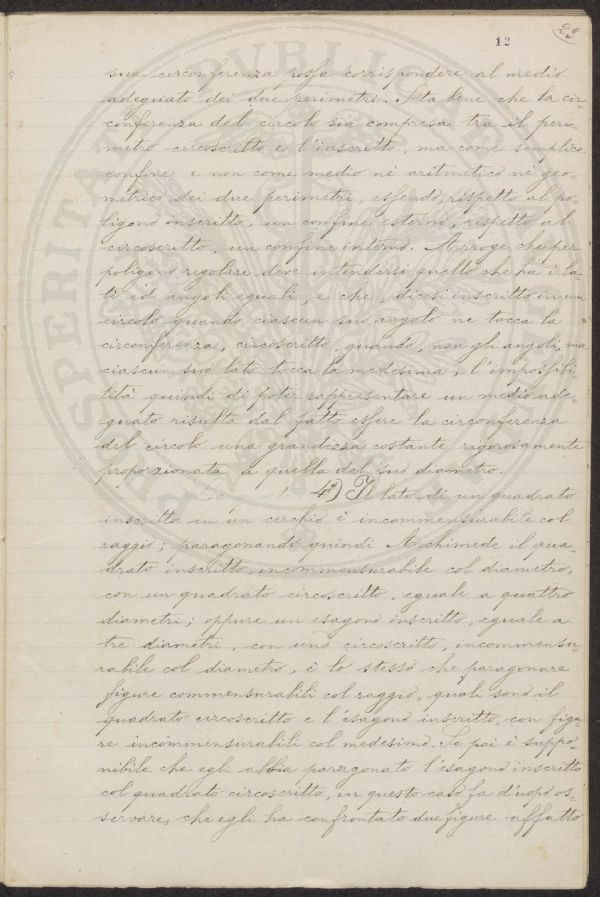 29
12
sua circonferenza possa corrispondere al medio
adeguato dei due perimetri. Sta bene che la cir-
conferenza del circolo sia compresa tra il peri-
metro circoscritto e l'inscritto, ma come semplice
confine e non come medio nè aritmetico nè geo-
metrico dei due perimetri, essendo, rispetto al po-
ligono inscritto, un confine esterno, rispetto al
circoscritto, un confine interno. Arroge che per
poligono regolare deve intendersi quello che ha i la-
ti ed angoli eguali, e che, dicesi inscritto in un
circolo quando ciascun suo angolo ne tocca la
circonferenza, circoscritto, quando, non gli angoli, ma
ciascun suo lato tocca la medesima, l'impossibi-
lità quindi di poter rappresentare un medio ade-
guato risulta dal fatto essere la circonferenza
del circolo una grandezza costante rigorosamente
proporzionata a quella del suo diametro.
4º) Il lato di un quadrato
inscritto in un cerchio è incommensurabile col
raggio; paragonando quindi Archimede il qua-
drato inscritto, incommensurabile col diametro,
con un quadrato circoscritto, eguale a quattro
diametri; oppure un esagono inscritto, eguale a
tre diametri, con uno circoscritto, incommensu-
rabile col diametro, è lo stesso che paragonare
figure commensurabili col raggio, quali sono il
quadrato circoscritto e l'esagono inscritto, con figu-
re incommensurabili col medesimo. Se poi è suppo-
nibile che egli abbia paragonato l'esagono inscritto
col quadrato circoscritto, in questo caso fa d'uopo os-
servare, che egli ha confrontato due figure affatto